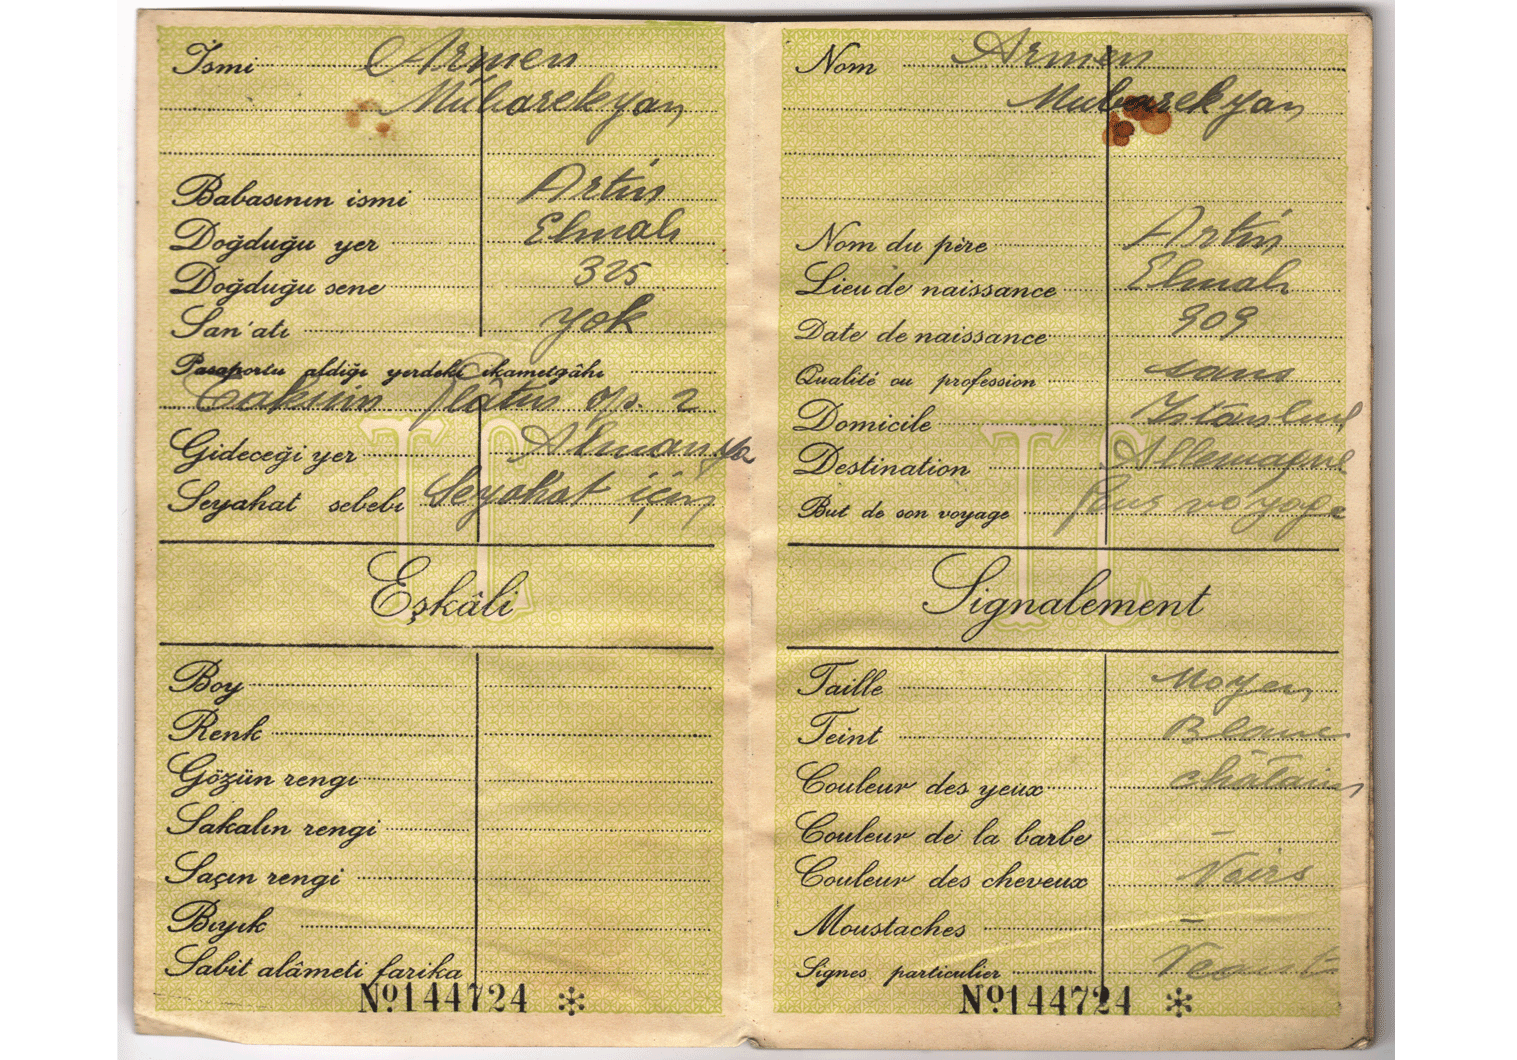 İsmi Armen
Mübarekyan
Babasının ismi Artin
Doğduğu yer Elmalı
Doğduğu sene 325
San'atı yok
Pasaportu aldığı yerdeki ikametgâhı
Taksim
Gideceği yer Almanya
Seyahat sebebi Seyahat için
Eşkâli
Boy
Renk
Gözün rengi
Sakalın rengi
Saçın rengi
Bıyık
Sabit alâmeti farika
Nº144724 *
TC
Nom Armen
Mubarekyan
Nom du père Artin
Lieu de naissance Elmalı
Date de naissance 909
Qualité ou profession sans
Domicile Istanbul
Destination Allemagne
But de son voyage voyage
Signalement
Taille Moyen
Teint Blanc
Couleur des yeux châtains
Couleur de la barbe –
Couleur des cheveux Noirs
Moustaches –
Signes particulier
Nº144724 *
TC